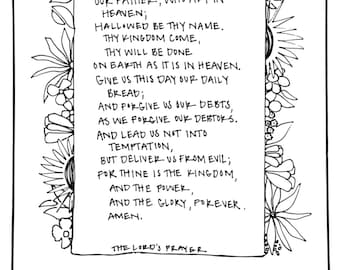 OUR FATHER, WHO ART IN
HEAVEN;
HALLOWED BE THY NAME.
THY KINGDOM COME,
THY WILL BE DONE
ON EARTH AS IT IS IN HEAVEN.
GIVE US THIS DAY OUR DAILY
BREAD;
AND FORGIVE US OUR DEBTS,
AS WE FORGIVE OUR DEBTORS.
AND LEAD US NOT INTO
TEMPTATION,
BUT DELIVER US FROM EVIL;
FOR THINE IS THE KINGDOM,
AND THE POWER,
AND THE GLORY, FOREVER.
AMEN.
THE LORD'S PRAYER